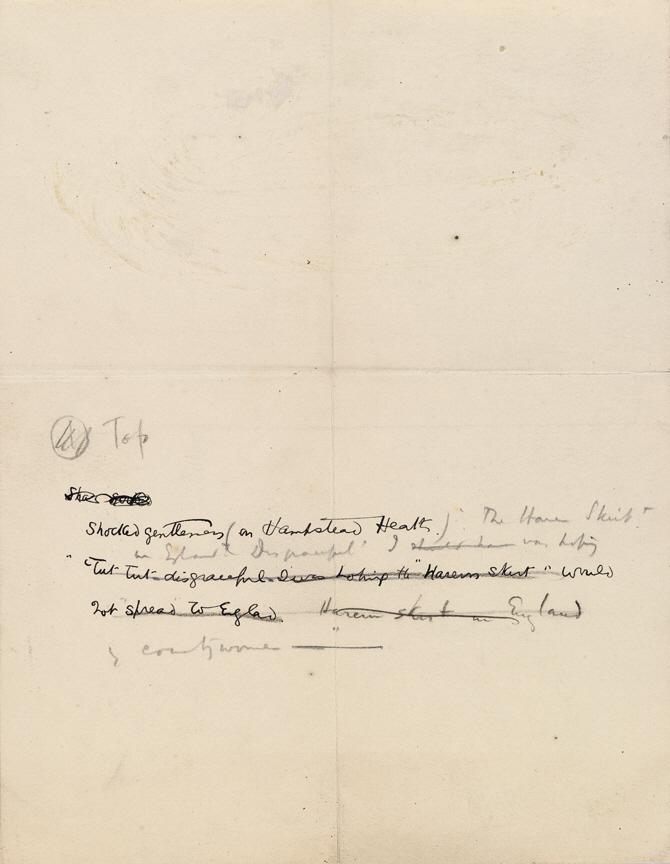 Top
Shocked gentleman (on Hampstead Heath.) "The Harem Skirt"
in England! Disgraceful! I was hoping
"Tut tut disgraceful. I was hoping th "Harem Skirt" would
not spread to England. Harem skirt in England
countrywomen